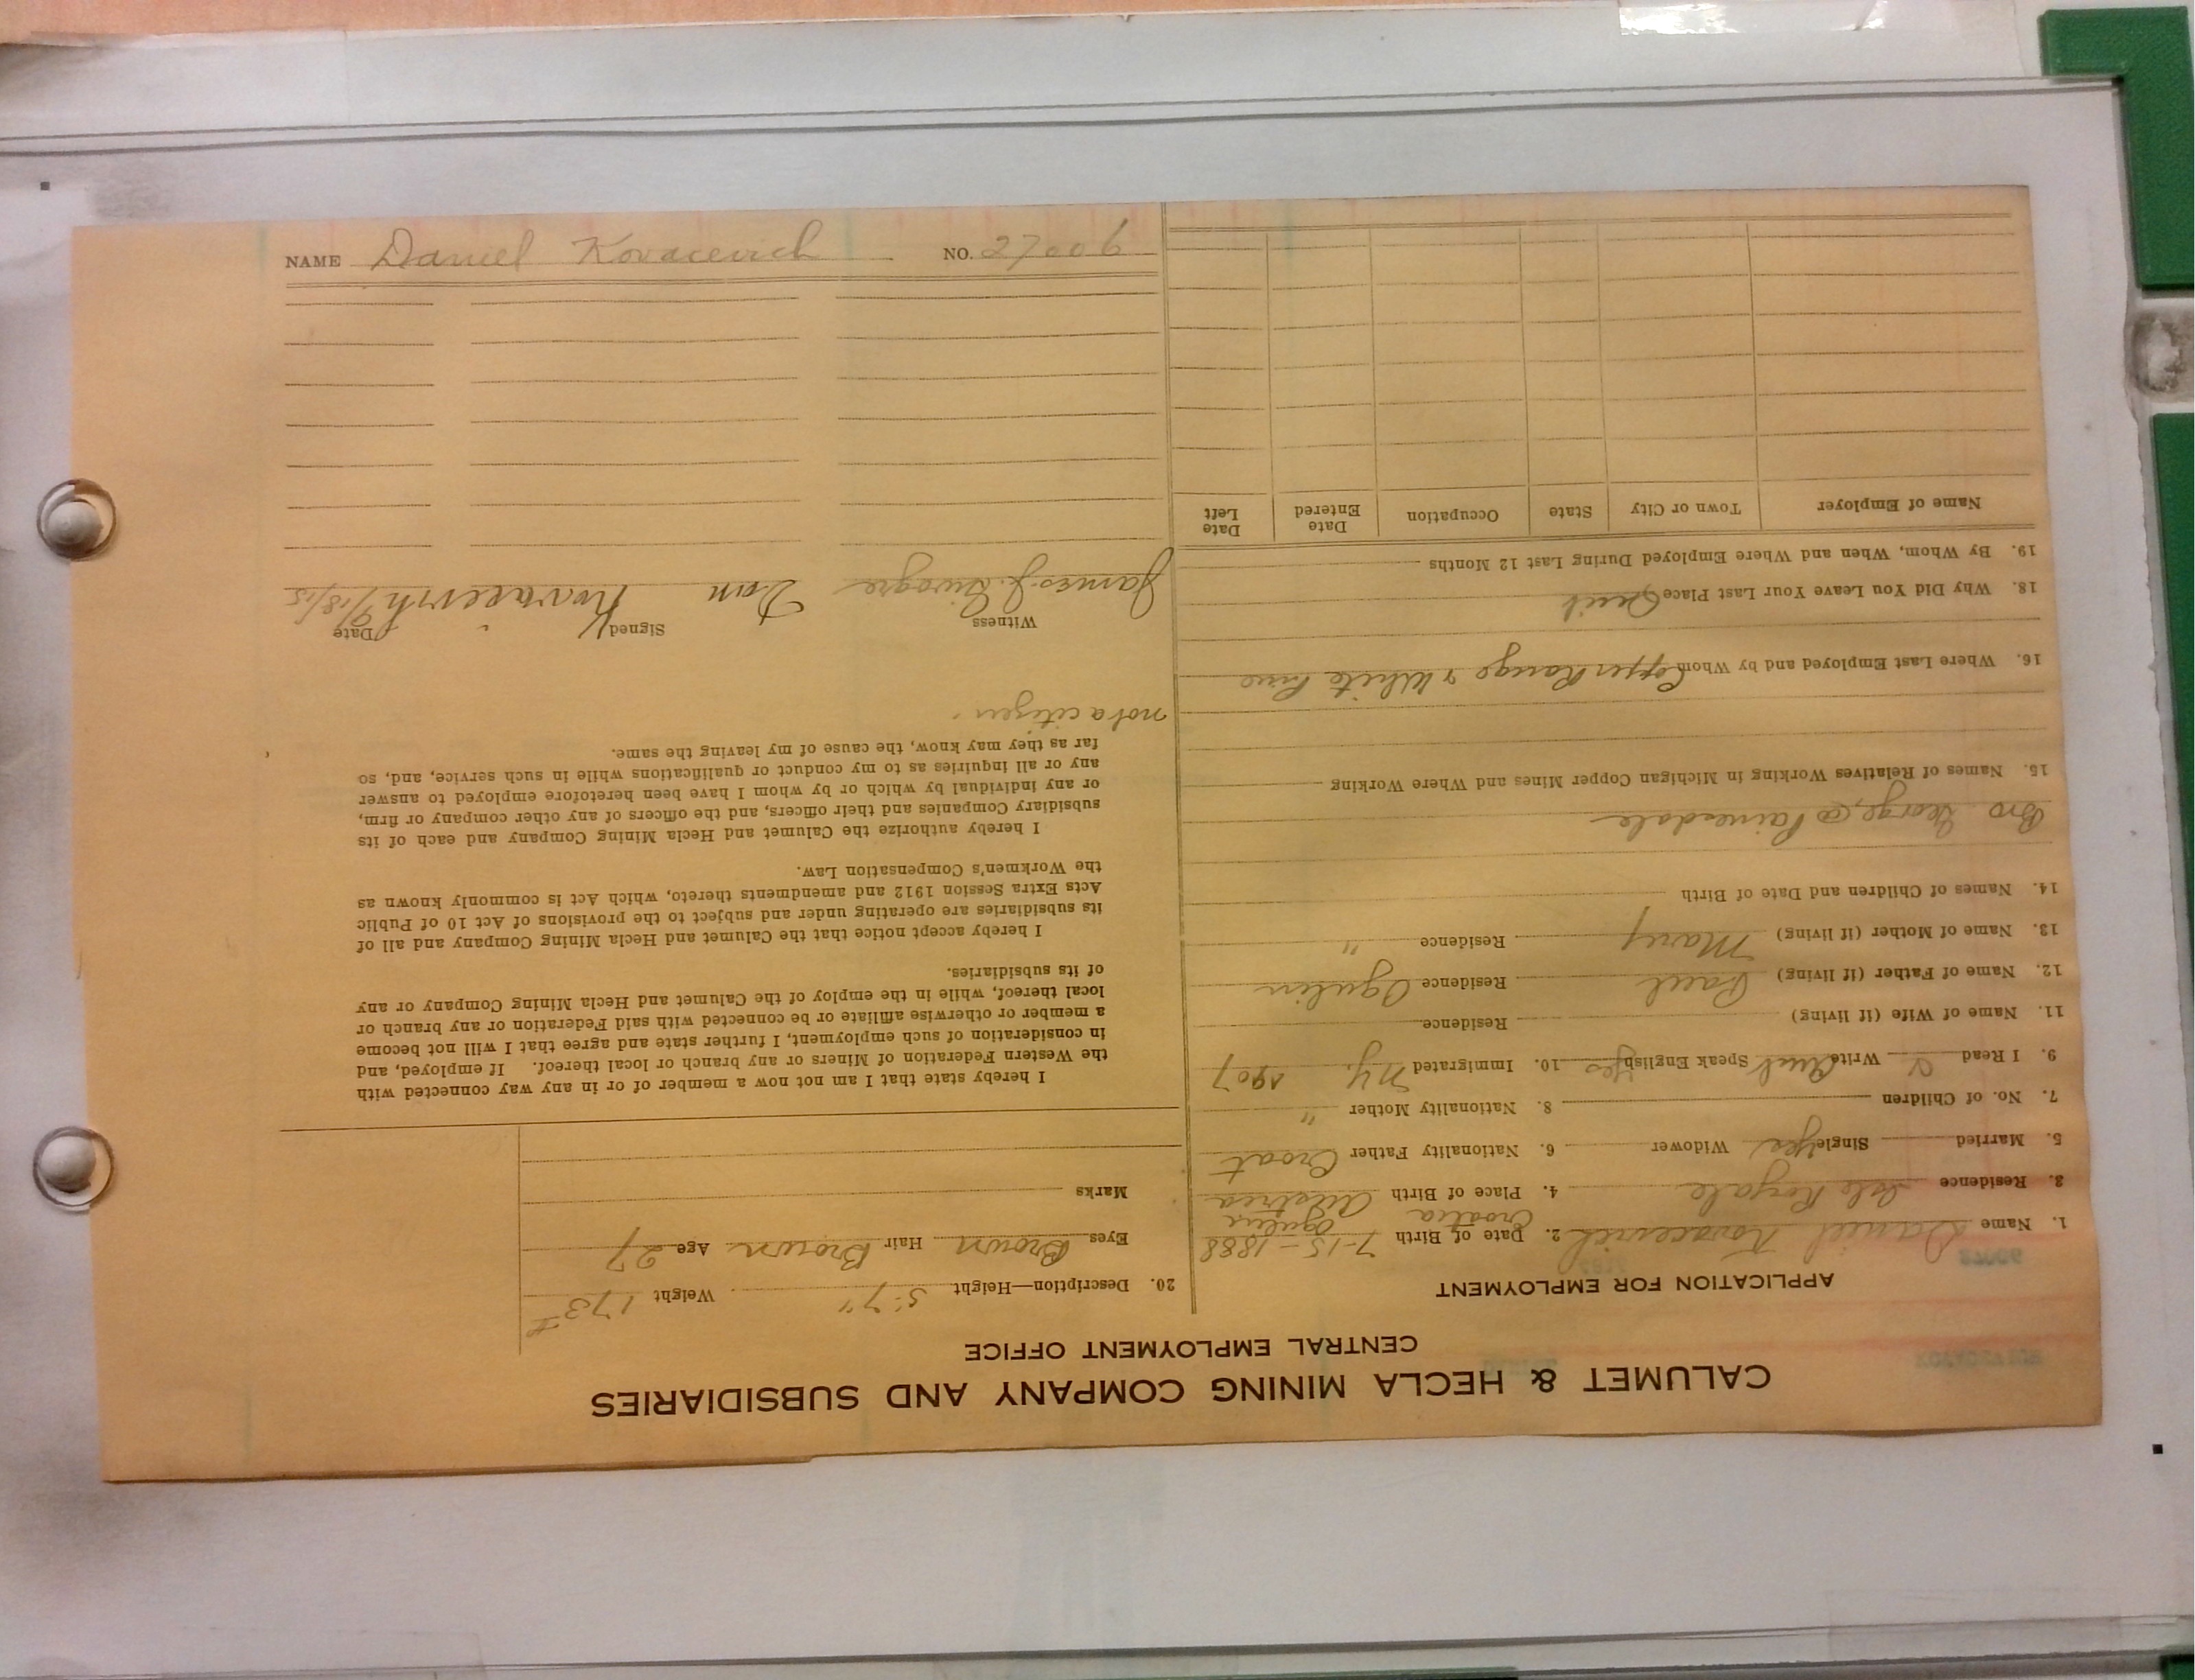 CALUMET & HECLA MINING COMPANY AND SUBSIDIARIES
CENTRAL EMPLOYMENT OFFICE
APPLICATION FOR EMPLOYMENT
1. Name Daniel Kovacevich 2. Date of Birth 7-15-1888
3. Residence Isle Royale 4. Place of Birth Croatia Ogulin Austria
5. Married Single yes Widower 6. Nationality Father Croat
7. No. of Children 8. Nationality Mother "
9. I Read & Write Speak English yes 10. Immigrated N.Y. 1907
11. Name of Wife (if living) Residence
12. Name of Father (if living) Paul Residence Ogulin
13. Name of Mother (if living) Mary Residence "
14. Names of Children and Date of Birth
Bro George, @ Painesdale
15. Names of Relatives Working in Michigan Copper Mines and Where Working
16. Where Last Employed and by Whom Copper Range & White Pine
18. Why Did You Leave Your Last Place Quit
19. By Whom, When and Where Employed During Last 12 Months
Name of Employer Town or City State Occupation Date Entered Date Left
20. Description—Height 5'-7" Weight 173#
Eyes Brown Hair Brown Age 27
Marks
I hereby state that I am not now a member of or in any way connected with
the Western Federation of Miners or any branch or local thereof. If employed, and
in consideration of such employment, I further state and agree that I will not become
a member or otherwise affiliate or be connected with said Federation or any branch or
local thereof, while in the employ of the Calumet and Hecla Mining Company or any
of its subsidiaries.
I hereby accept notice that the Calumet and Hecla Mining Company and all of
its subsidiaries are operating under and subject to the provisions of Act 10 of Public
Acts Extra Session 1912 and amendments thereto, which Act is commonly known as
the Workmen's Compensation Law.
I hereby authorize the Calumet and Hecla Mining Company and each of its
subsidiary Companies and their officers, and the officers of any other company or firm,
or any individual by which or by whom I have been heretofore employed to answer
any or all inquiries as to my conduct or qualifications while in such service, and, so
far as they may know, the cause of my leaving the same.
not a citizen.
Witness Signed Date
James J. Dan Kovacevich 9/18/15
NAME Daniel Kovacevich NO. 27006